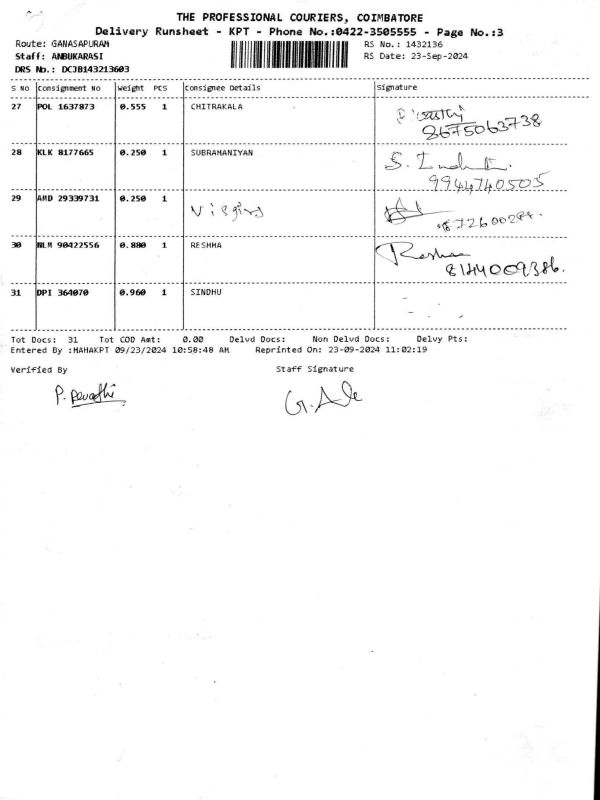 THE PROFESSIONAL COURIERS, COIMBATORE
Delivery Runsheet - KPT - Phone No.:0422-3505555 - Page No.:3
Route: GANASAPURAM RS No.: 1432136
Staff: ANBUKARASI RS Date: 23-Sep-2024
DRS No.: DCJB143213603
S No Consignment No Weight PCS Consignee Details Signature
27 POL 1637873 0.555 1 CHITRAKALA
8675063738
28 KLK 8177665 0.250 1 SUBRAMANIYAN S.
9944740505
29 AMD 29339731 0.250 1
30 NLM 90422556 0.880 1 RESHMA Reshma
8144009386.
31 DPI 364070 0.960 1 SINDHU
Tot Docs: 31 Tot COD Amt: 0.00 Delvd Docs: Non Delvd Docs: Delvy Pts:
Entered By :MAHAKPT 09/23/2024 10:58:48 AM Reprinted On: 23-09-2024 11:02:19
Verified By Staff Signature
P. Revathi